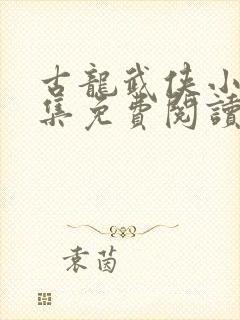 古龍武俠小
集免費閱讀
袁茵